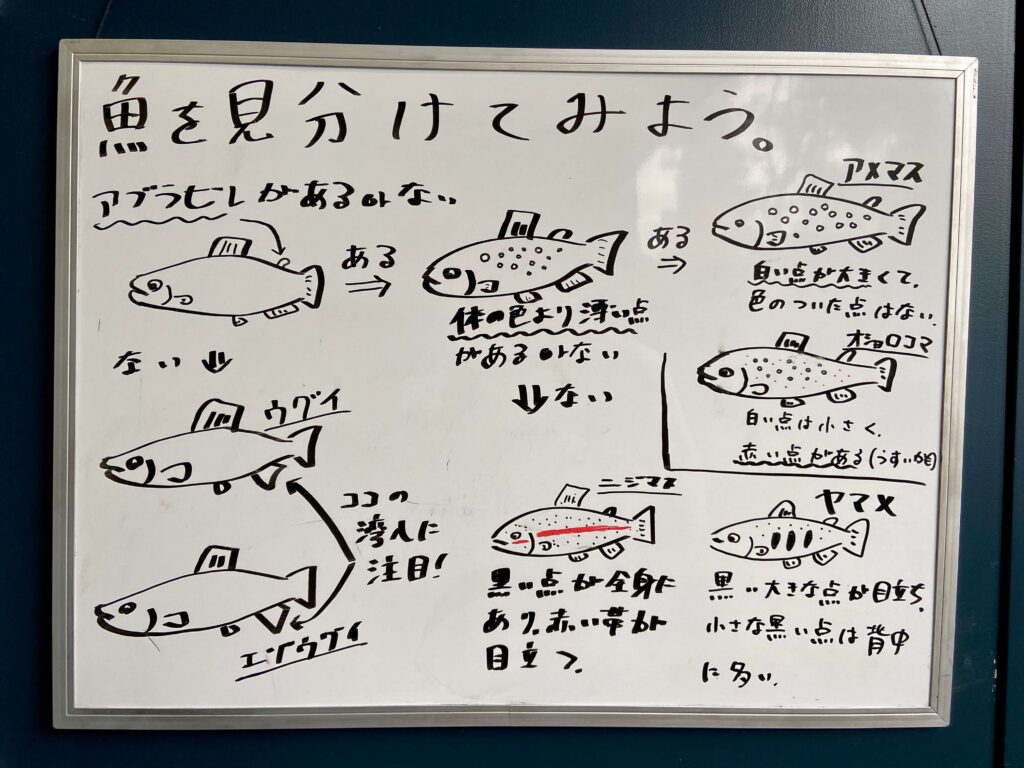 魚を見分けてみよう。
アブラビレがあるorない
ある
⇒
ない
⇓
体の色より薄い点
があるorない
ある
⇒
アメマス
白い点が大きくて、
色のついた点はない。
オショロコマ
白い点は小さく、
赤い点がある(うすいかも)
⇓
ない
ニジマス
黒い点が全身に
あり、赤い帯が
目立つ。
ヤマメ
黒い大きな点が目立ち、
小さな黒い点は背中
に多い。
ウグイ
ココの
湾入に
注目!
エゾウグイ